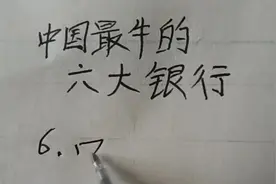 中国最牛的
六大银行
6.